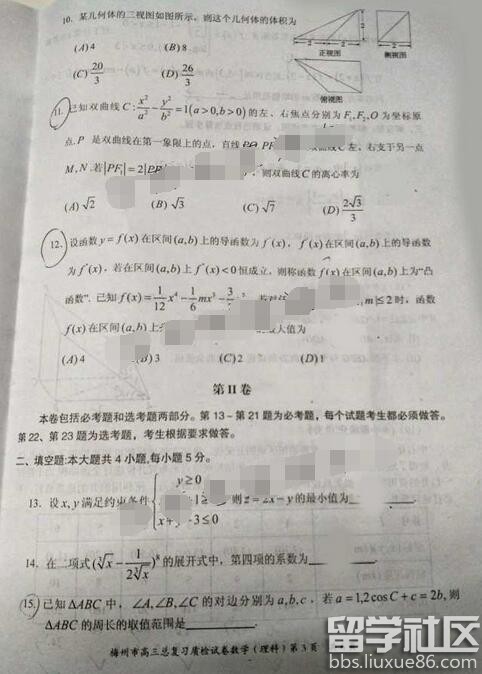 10. 某几何体的三视图如图所示,则这个几何体的体积为
(A)4 (B)8
(C)20/3 (D)26/3
2
2 2 2
正视图 侧视图
俯视图
11. 已知双曲线C:x²/a²-y²/b²=1(a>0,b>0)的左、右焦点分别为F₁,F₂,O为坐标原
点.P 是双曲线在第一象限上的点,直线 双曲线C左、右支于另一点
M,N.若|PF₁|=2|PF ,则双曲线C的离心率为
(A)√2 (B)√3 (C)√7 (D)2√3/3
12. 设函数y=f(x)在区间(a,b)上的导函数为f'(x),f'(x)在区间(a,b)上的导函数
为f''(x),若在区间(a,b)上f''(x)<0恒成立,则称函数f(x)在区间(a,b)上为“凸
函数”. 已知f(x)=1/12x⁴-1/6mx³-3/ m|≤2时,函数
f(x)在区间(a,b)上 最大值为
(A)4 (B)3 (C)2 (D)1
第II卷
本卷包括必考题和选考题两部分。第13~第21题为必考题,每个试题考生都必须做答。
第22、第23题为选考题,考生根据要求做答。
二、填空题:本大题共4小题,每小题5分。
13. 设x,y满足约束条件{ y≥0
-1≥ 则z=2x-y的最小值为
x+ -3≤0
14. 在二项式(∛x-1/2∛x)⁸的展开式中,第四项的系数为
15. 已知ΔABC中,∠A,∠B,∠C的对边分别为a,b,c,若a=1,2cosC+c=2b,则
ΔABC的周长的取值范围是
梅州市高三总复习质检试卷数学(理科)第3页
留学社区
bbs.liuxue86.com